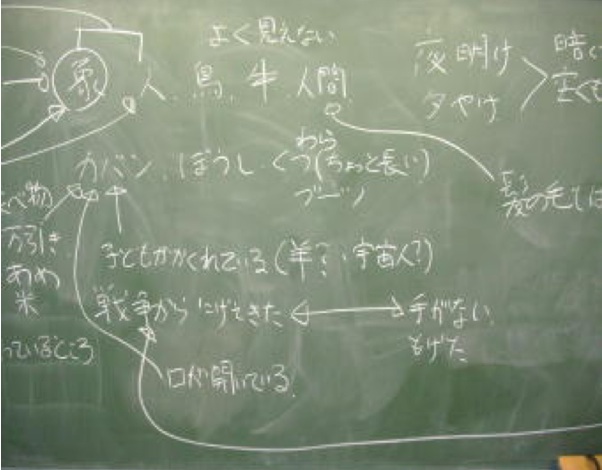 よく見えない
象 人、鳥、牛、人間
夜明け
夕やけ
暗く
カバン、ぼうし、くつ(ちょっと長い)
わら
ブーツ
髪の毛
べ物
万引き
あめ
米
っているところ
子どもがかくれている(羊?、宇宙人?)
戦争からにげてきた
手がない
もげた
口が開いている